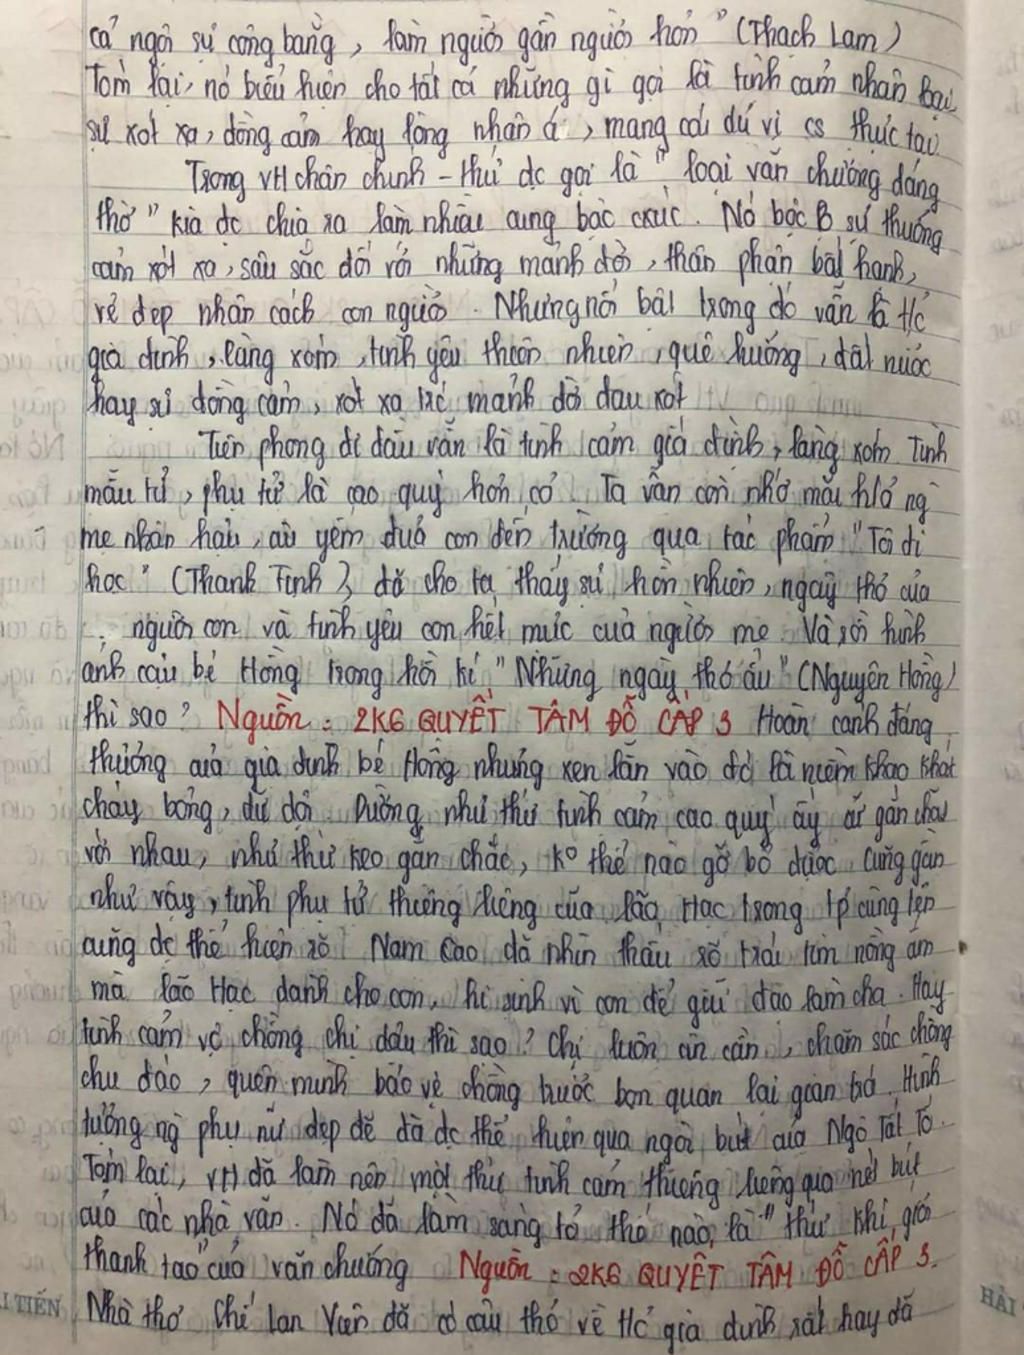 ca ngợi sự công bằng, làm người gần người hơn" (Thạch Lam)
Tóm lại, nó biểu hiện cho tất cả những gì gọi là tình cảm nhân loại
sự xót xa, đồng cảm hay lòng nhân ái, mang cái dư vị cs thực tại
Trong VH chân chính - thứ đc gọi là "loại văn chương đáng
thờ" kia đc chia ra làm nhiều cung bậc cxúc. Nó bộc B sự thương
cảm xót xa, sâu sắc đối với những mảnh đời, thân phận bất hạnh,
vẻ đẹp nhân cách con người. Nhưng nổi bật trong đó vẫn là t/c
gia đình, làng xóm, tình yêu thiên nhiên, quê hương, đất nước
hay sự đồng cảm, xót xa trc mảnh đời đau xót
Tiên phong đi đầu vẫn là tình cảm gia đình, làng xóm Tình
mẫu tử, phụ tử là cao quý hơn cả. Ta vẫn còn nhớ mãi h/ả ng
mẹ nhân hậu, âu yếm đưa con đến trường qua tác phẩm "Tôi đi
học" (Thanh Tịnh), đã cho ta thấy sự hồn nhiên, ngây thơ của
người con và tình yêu con hết mực của người mẹ. Và rồi hình
ảnh cậu bé Hồng trong hồi kí "Những ngày thơ ấu" (Nguyên Hồng)
thì sao? Nguồn: 2K6 QUYẾT TÂM ĐỖ CẤP 3 Hoàn cảnh đáng
thương của gia đình bé Hồng nhưng xen lẫn vào đó là niềm khao khát
cháy bỏng, dữ dội. Dường như thứ tình cảm cao quý ấy cứ gắn chặt
với nhau, như thứ keo gắn chắc, ko thể nào gỡ bỏ được. Cũng gần
như vậy, tình phụ tử thiêng liêng của lão Hạc trong tp cùng tên
cũng đc thể hiện rõ. Nam Cao đã nhìn thấu rõ trái tim nồng ấm
mà lão Hạc dành cho con, hi sinh vì con để giữ đạo làm cha. Hay
tình cảm vợ chồng chị dậu thì sao? Chị luôn ân cần, chăm sóc chồng
chu đáo, quên mình bảo vệ chồng trước bọn quan lại gian trá. Hình
tượng ng phụ nữ đẹp đẽ đã đc thể hiện qua ngòi bút của Ngô Tất Tố.
Tóm lại, VH đã làm nên một thứ tình cảm thiêng liêng qua nét bút
của các nhà văn. Nó đã làm sáng tỏ thế nào là "thứ khí giới
thanh tao" của văn chương Nguồn: 2K6 QUYẾT TÂM ĐỖ CẤP 3.
Nhà thơ Chế Lan Viên đã có câu thơ về t/c gia đình rất hay đã
TIẾN
HẢI